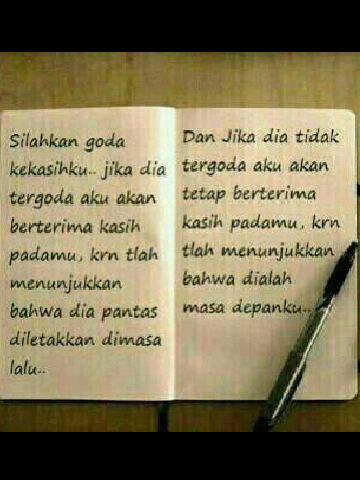 Silahkan goda
kekasihku.. jika dia
tergoda aku akan
berterima kasih
padamu, krn tlah
menunjukkan
bahwa dia pantas
diletakkan dimasa
lalu..
Dan Jika dia tidak
tergoda aku akan
tetap berterima
kasih padamu, krn
tlah menunjukkan
bahwa dialah
masa depanku..